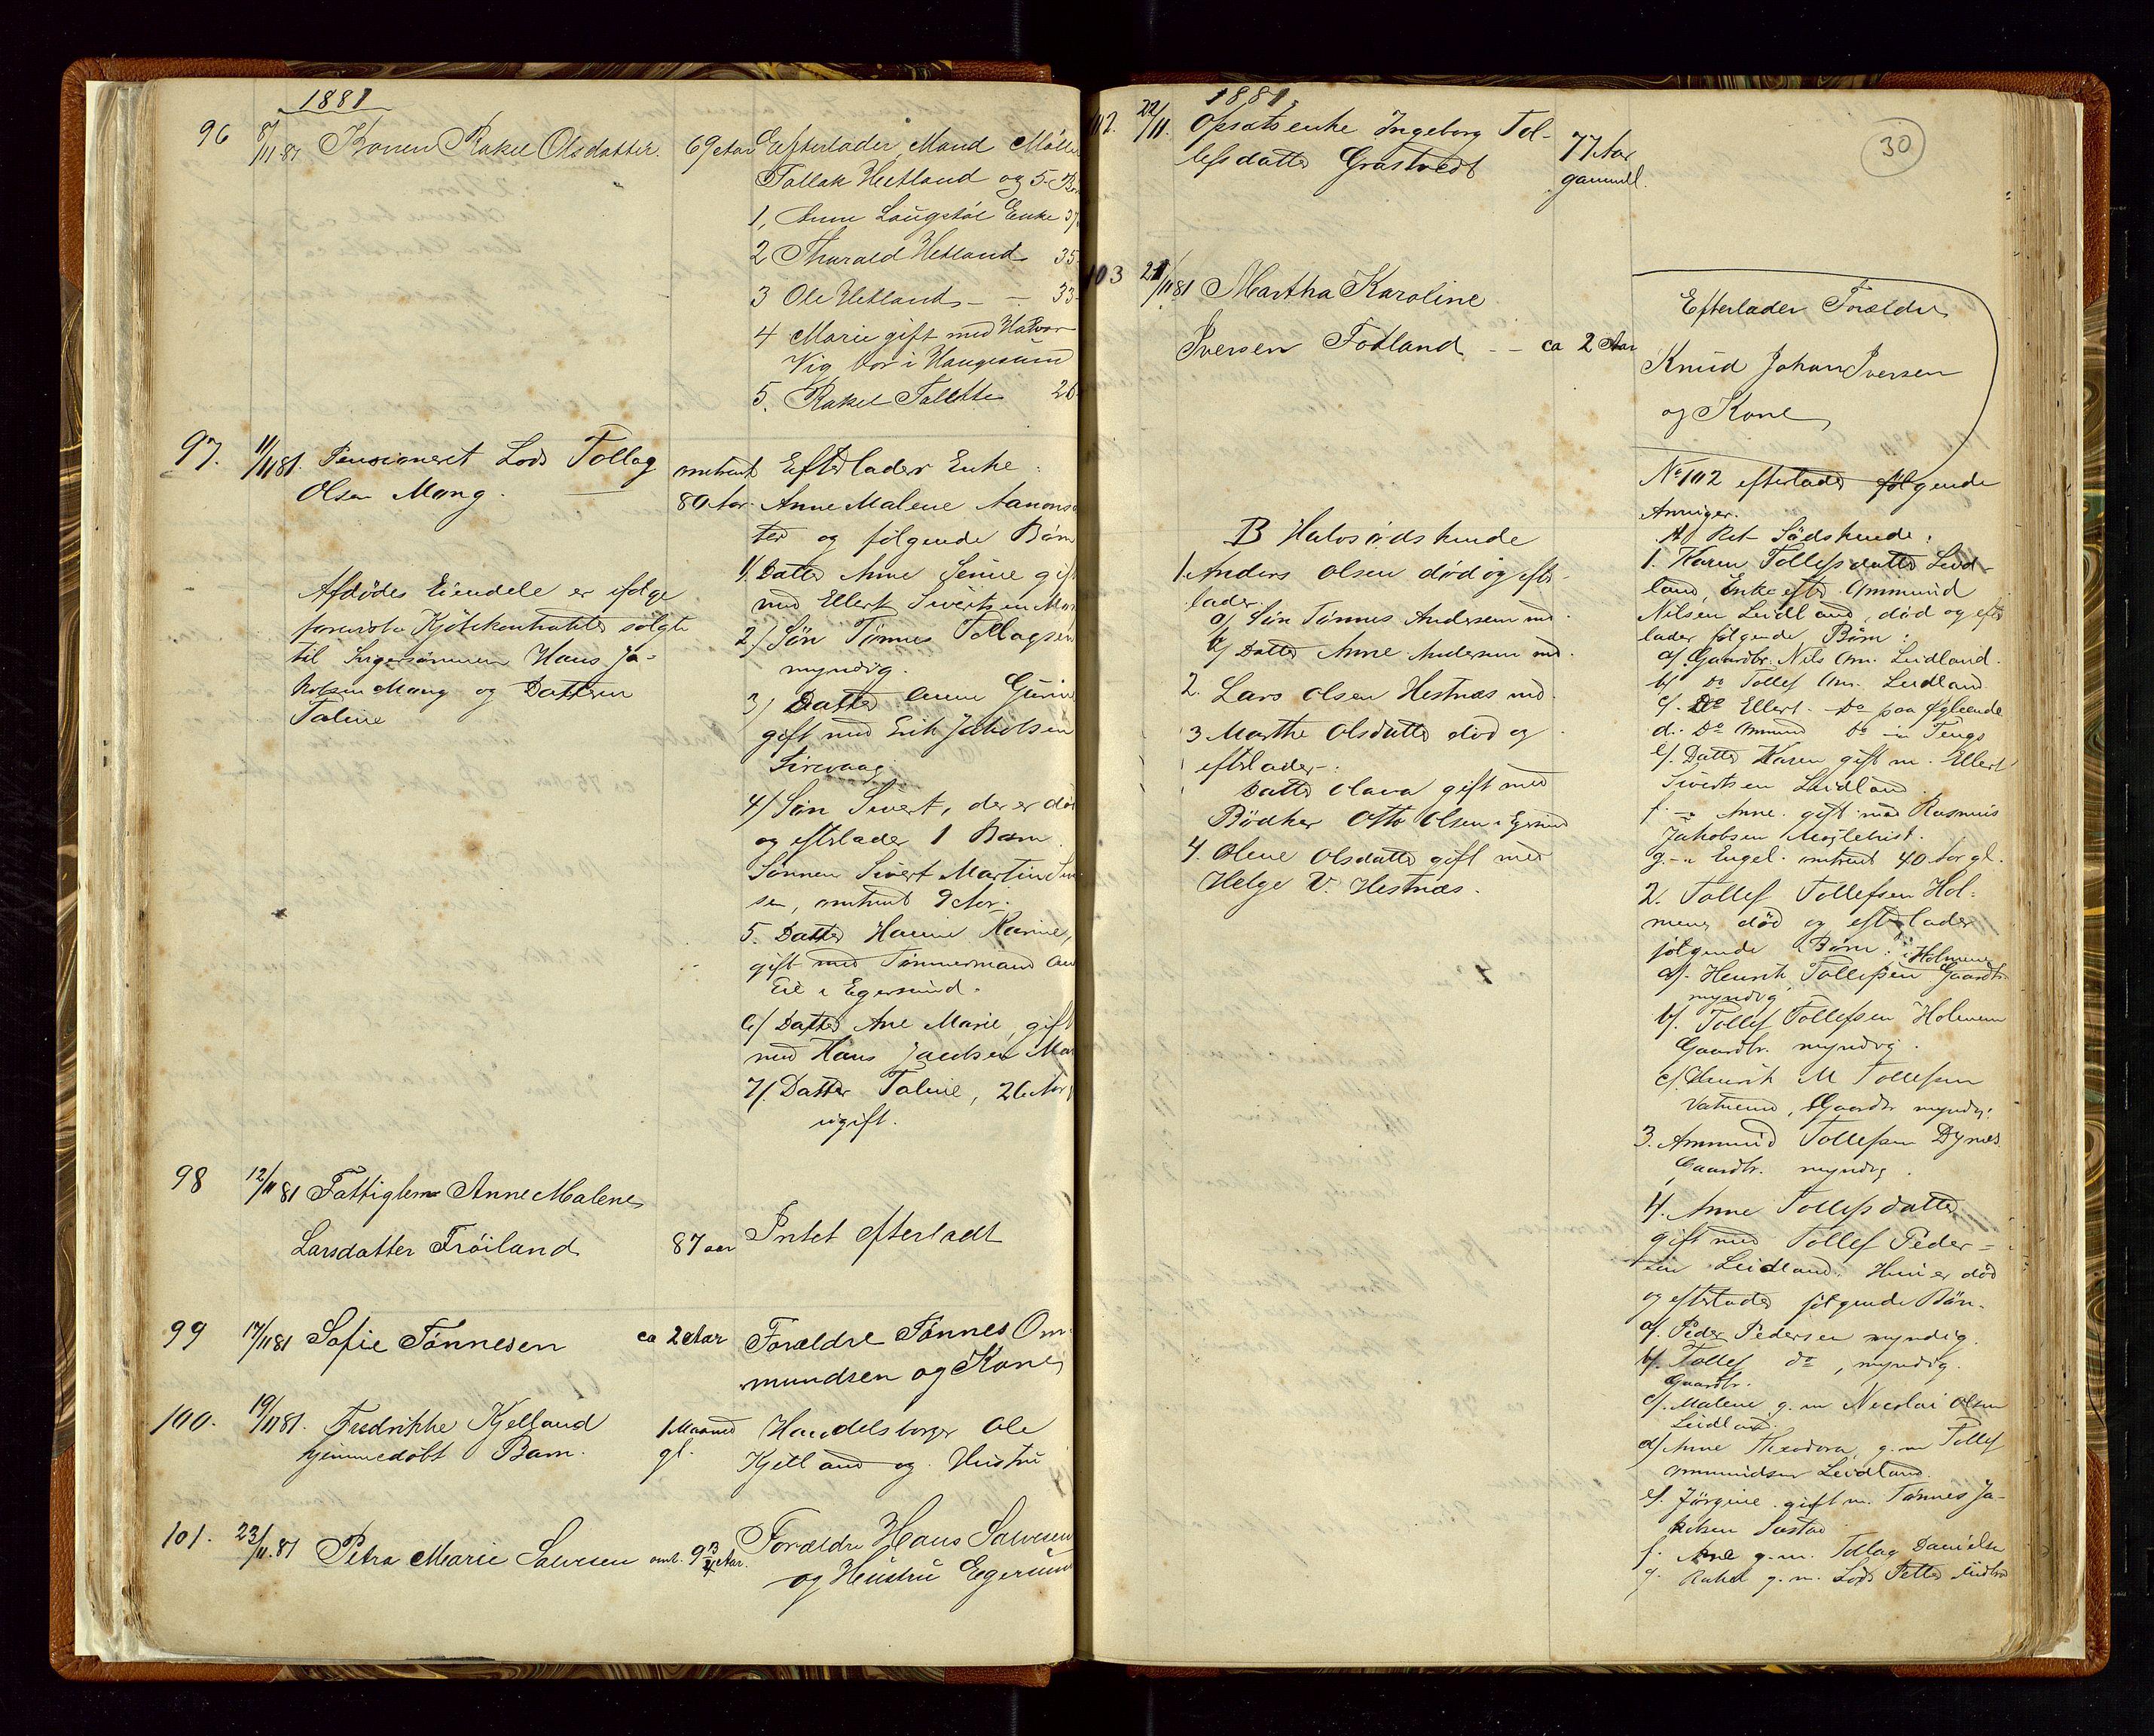 1881
96 8/11 81 Konen Rakel Olsdatter. 69 Aar Efterlader Mand Mölle
Tollak Hetland og 5 
1, Anne Laugstöl Enke 37
2 Tharald Hetland 35
3 Ole Hetland - - 33
4 Marie gift med Halvor
Vig bor i Haugesund
5. Rakel Tallette 26
97. 11/11 81. Pensioneret Lods Tollag omtrent Efterlader Enke:
Olsen Mong. 80 Aar. Anne Malene Aanons
ter og følgende Børn
1). Datter Anne Serine gift
med Ellert Sivertsen Mon
2/ Søn Tønnes Tollagsen
myndig.
3/ Datter Anne Gurine
gift med Erik Jakobsen
Sirevaag
4/ Søn Sivert, der er død
og efterlader 1 Barn
Sønnen Sivert Martin
sen, omtrent 9 Aar.
5. Datter Hanne Karine,
gift med Tømmermand
Eie i Egersund.
6/ Datter Ane Marie, gift
med Hans Jacobsen Mo
7/. Datter Taline, 26 Aar
ugift.
Afdødes Eiendele er ifølge
foreviste Kjøbekontrakter solgte
til Svigersönnen Hans Ja-
kobsen Mong og Datteren
Taline
98 12/11 81 Fattiglem Anne Malene
Larsdatter Fröiland 87 aar Intet efterladt
99 17/11 81 Sofie Tönnesen ca 2 Aar Forældre Tönnes Om
mundsen og Kone
100. 19/11 81. Fredrikke Kjelland 1 Maaned Handelsborger Ole
hjemmedöbt Barn. gl. Kjelland og Hustru
101. 23/11. 81 Petra Marie Salvesen omt. 9 3/4 Aar. Forældre Hans Salvesen
og Hustru Egersund
1881.
102. 22/11. Opsatsenke Ingeborg Tol-
lefsdatter Grastvedt 77 Aar
gammel.
30
103 21/11 81 Martha Karoline
Iversen Fotland - - ca 2 Aar
Efterlader Forældre
Knud Johan Iversen
og Kone
B Halvsødskende
1. Anders Olsen død og efter-
lader.
a/ Søn Tønnes Andersen md.
b/ Datter Anne Andersen md.
2. Lars Olsen Hestnæs md.
3 Marthe Olsdatter død og
efterlader:
Datter Olava gift med
Bødker Otto Olsen i Egersund
4. Olene Olsdatter gift med
Helge V. Hestnæs.
No 102 efterlader følgende
Arvinger.
A/ Ret Sødskende:
1. Karen Tollefsdatter Leid-
land, Enke efter Ommund
Nilsen Leidland, død og efter
lader følgende Børn:
a/ Gaardbr. Nils Om. Leidland.
b/ Do Tollef Om. Leidland
c/. Do Ellert. Do paa Øgleende
d. Do Ommund Do - Tengs
e/. Datter Karen gift m. Ellert
Sivertsen Leidland.
f. - Anne gift med Rasmus
Jakobsen Møgletuist.
g. - Engel. omtrent 40 Aar gl.
2. Tollef Tollefsen Hol-
mene død og efterlader
følgende Børn:
a/. Henrik Tollefsen Holmene Gaardbr.
myndig
b/. Tollef Tollefsen Holmene
Gaardbr. myndig.
c/. Henrik M Tollefsen
Vatnemo, Gaardbr myndig.
3. Ommund Tollefsen Dynes
Gaardbr. myndig.
4. Anne Tollefsdatter
gift med Tollef Peder-
sen Leidland. Hun er død
og efterlader følgende Børn.
a/. Peder Pedersen myndig.
b/. Tollef do, myndig.
Gaardbr.
c/. Malene g. m Nicolai Olsen
Leidland.
d/ Anne Theodora, g. m Tollef
Ommundsen Leidland.
e/. Jörgine gift m. Tønnes Ja-
kobsen
f. Ane g. m. Tollag Danielse
g. Rakel g. m. Lods Petter